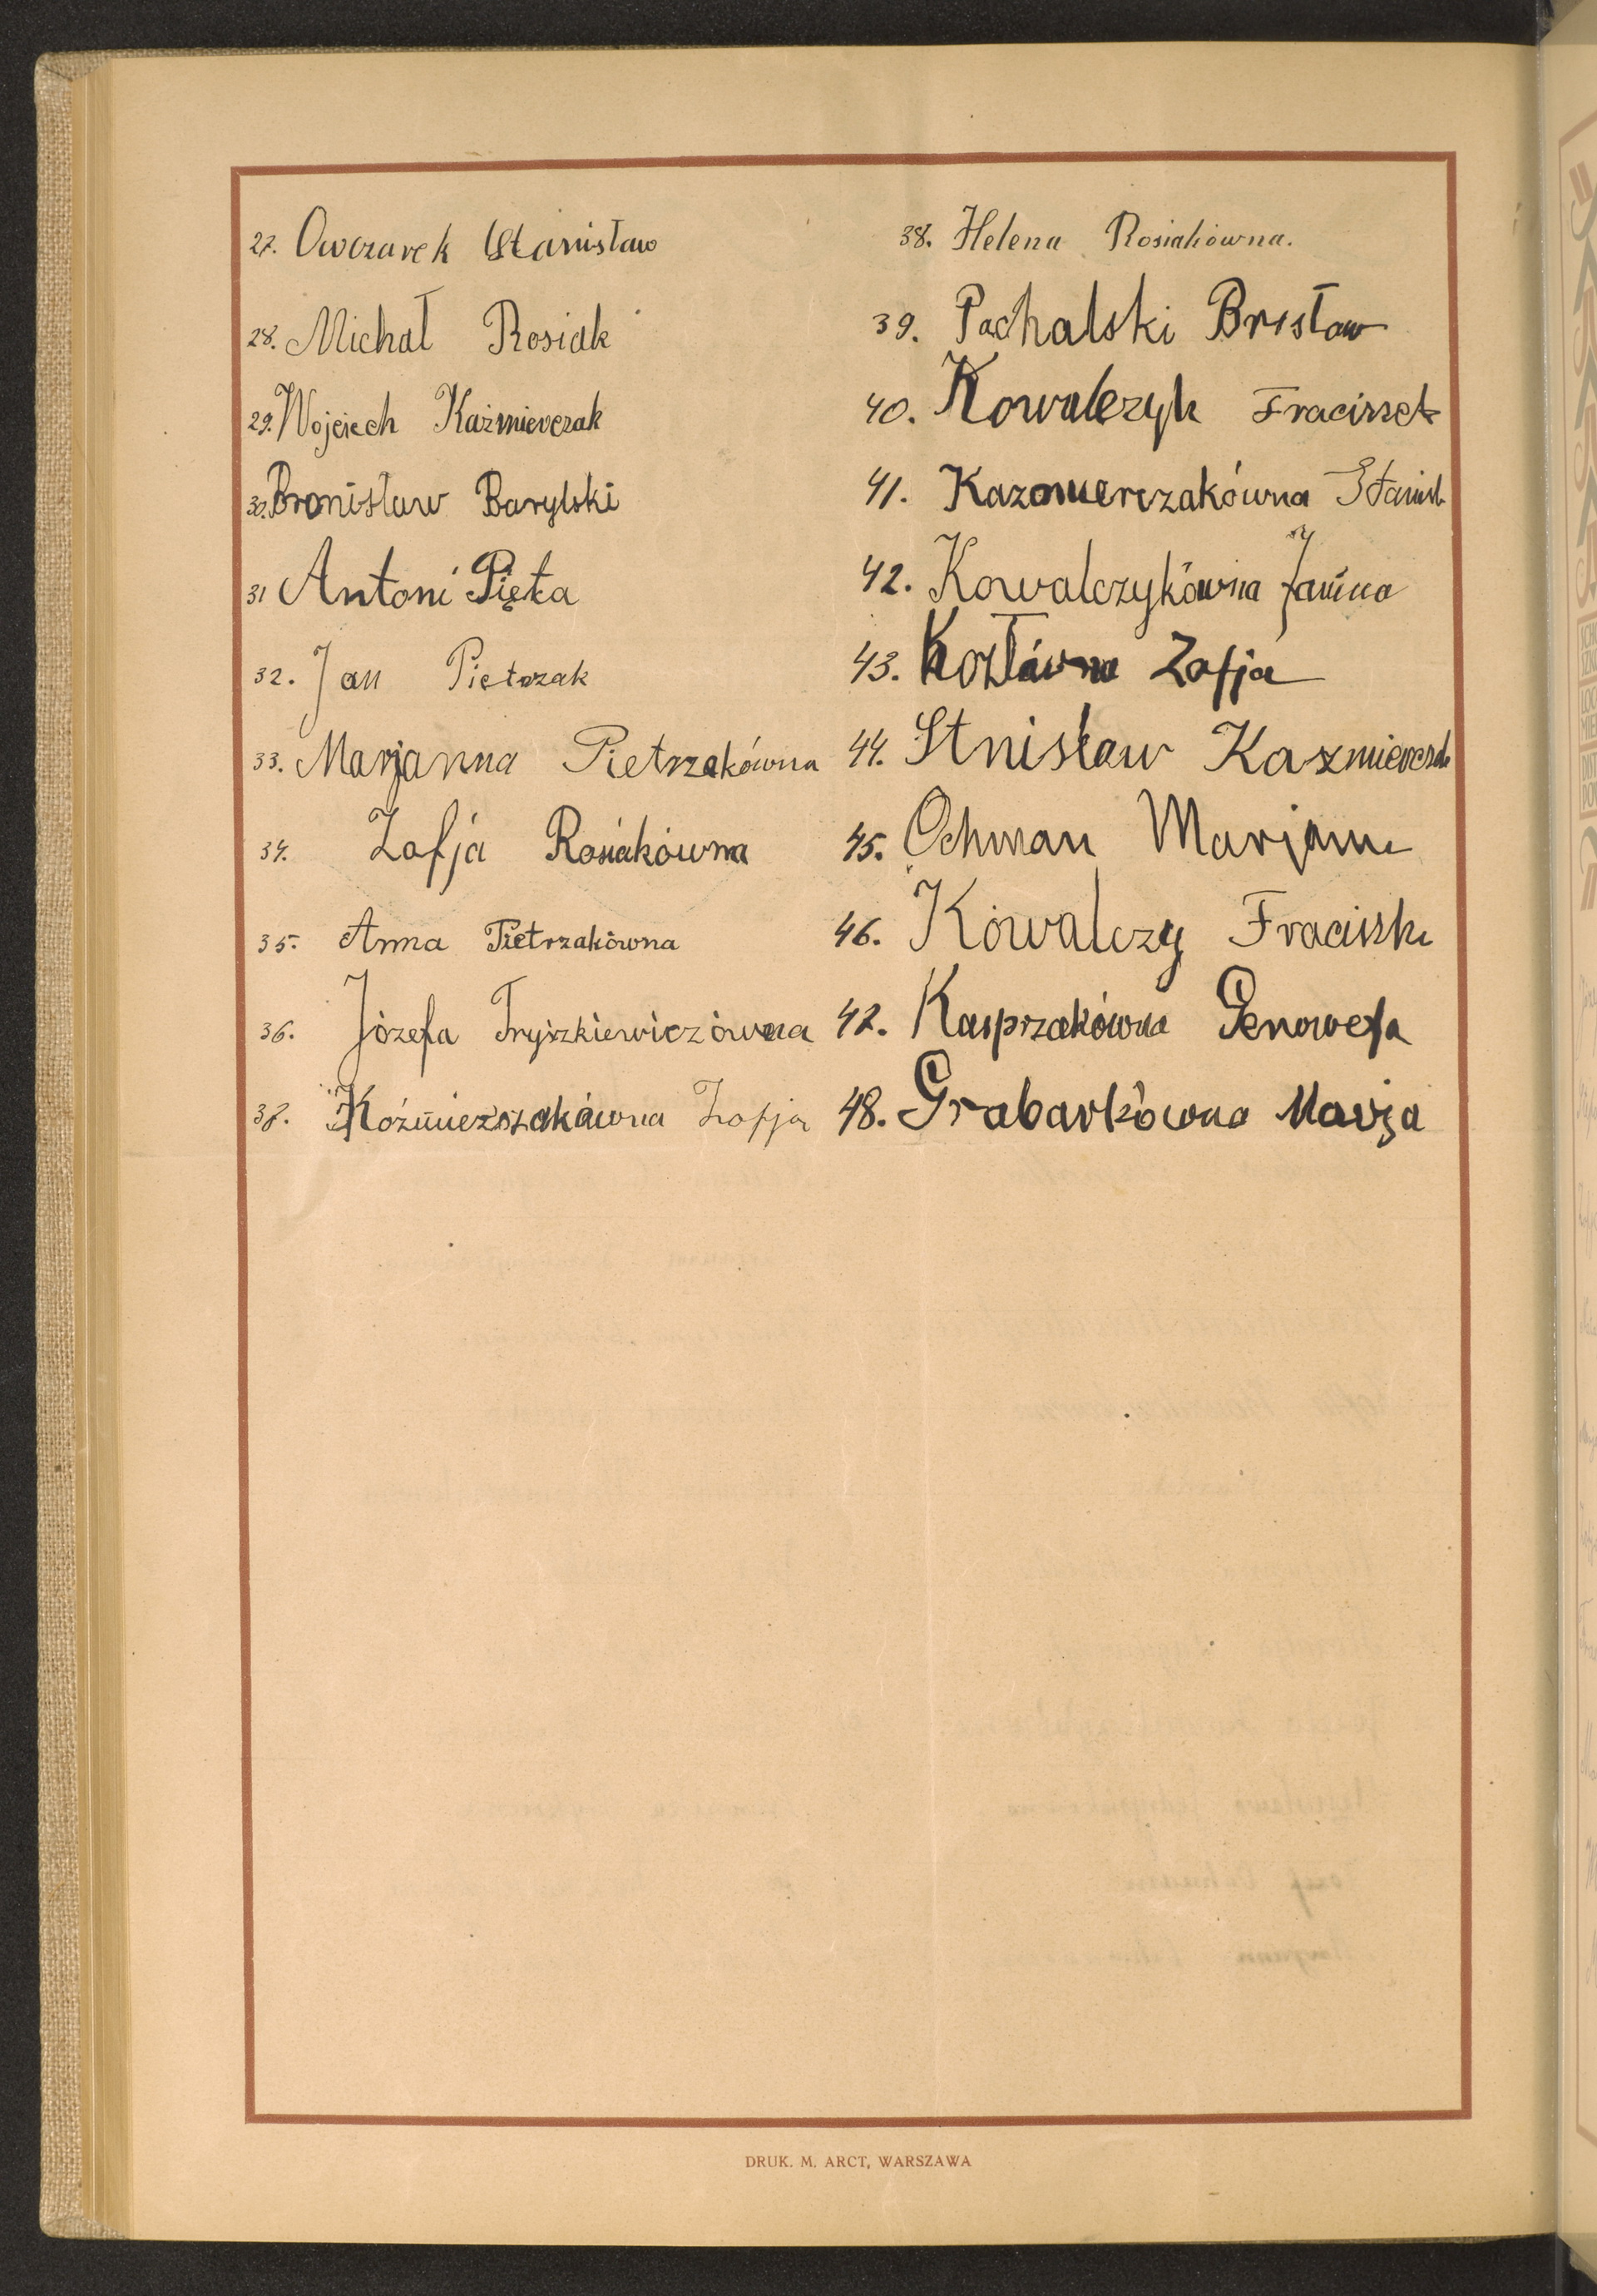 27. Owczarek Stanisław
28. Michał Rosiak
29. Wojciech Kaźmierczak
30. Bronisław Barylski
31 Antoni Pięta
32. Jan Pietrzak
33. Marjanna Pietrzakówna
34. Zofja Rosiakówna
35. Anna Pietrzakówna
36. Józefa Fryszkiewiczówna
37. Kaźmierszakówna Zofja
38. Helena Rosiakówna.
39. Pachalski Brisław
40. Kowalczyk Fraciszek
41. Kazomierczakówna Stanisł
42. Kowalczykówna Janina
43. Kozłówna Zofja
44. Stnisław Kaszmierczak
45. Ochman Marjann
46. Kowalczy Fraciszk
47. Kasprzakówna Genowefa
48. Grabarkówna Marja
DRUK. M. ARCT, WARSZAWA